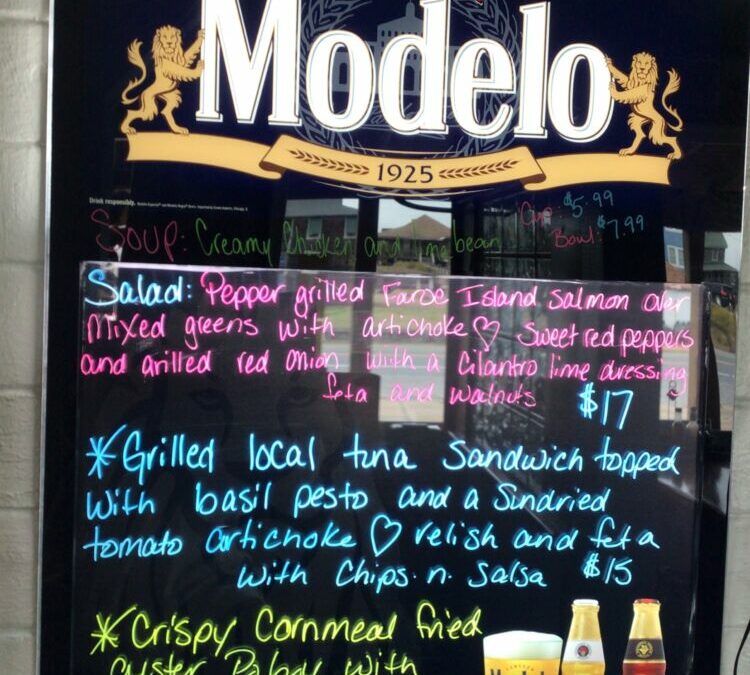 Modelo
1925
Drink responsibly.
Soup: Creamy Chicken and limabean Cup: $5.99
Bowl: $7.99
Salad: Pepper grilled Faroe Island Salmon over
Mixed greens with artichoke ♡ Sweet red peppers
and grilled red onion with a Cilantro lime dressing
feta and walnuts $17
*Grilled local tuna Sandwich topped
with basil pesto and a Sundried
tomato artichoke ♡ relish and feta
with Chips.n.Salsa $15
*Crispy Cornmeal fried
oyster Poboy with
Modelo